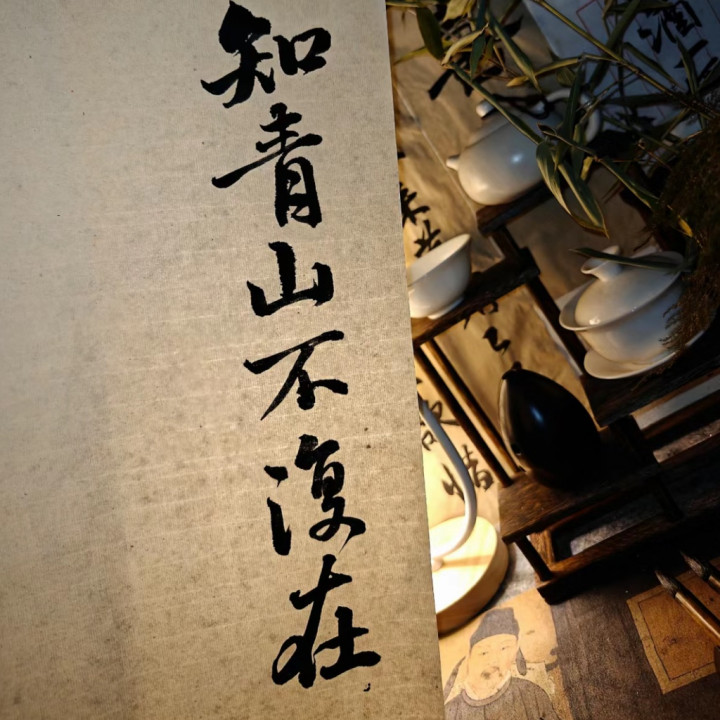 知青山不復在